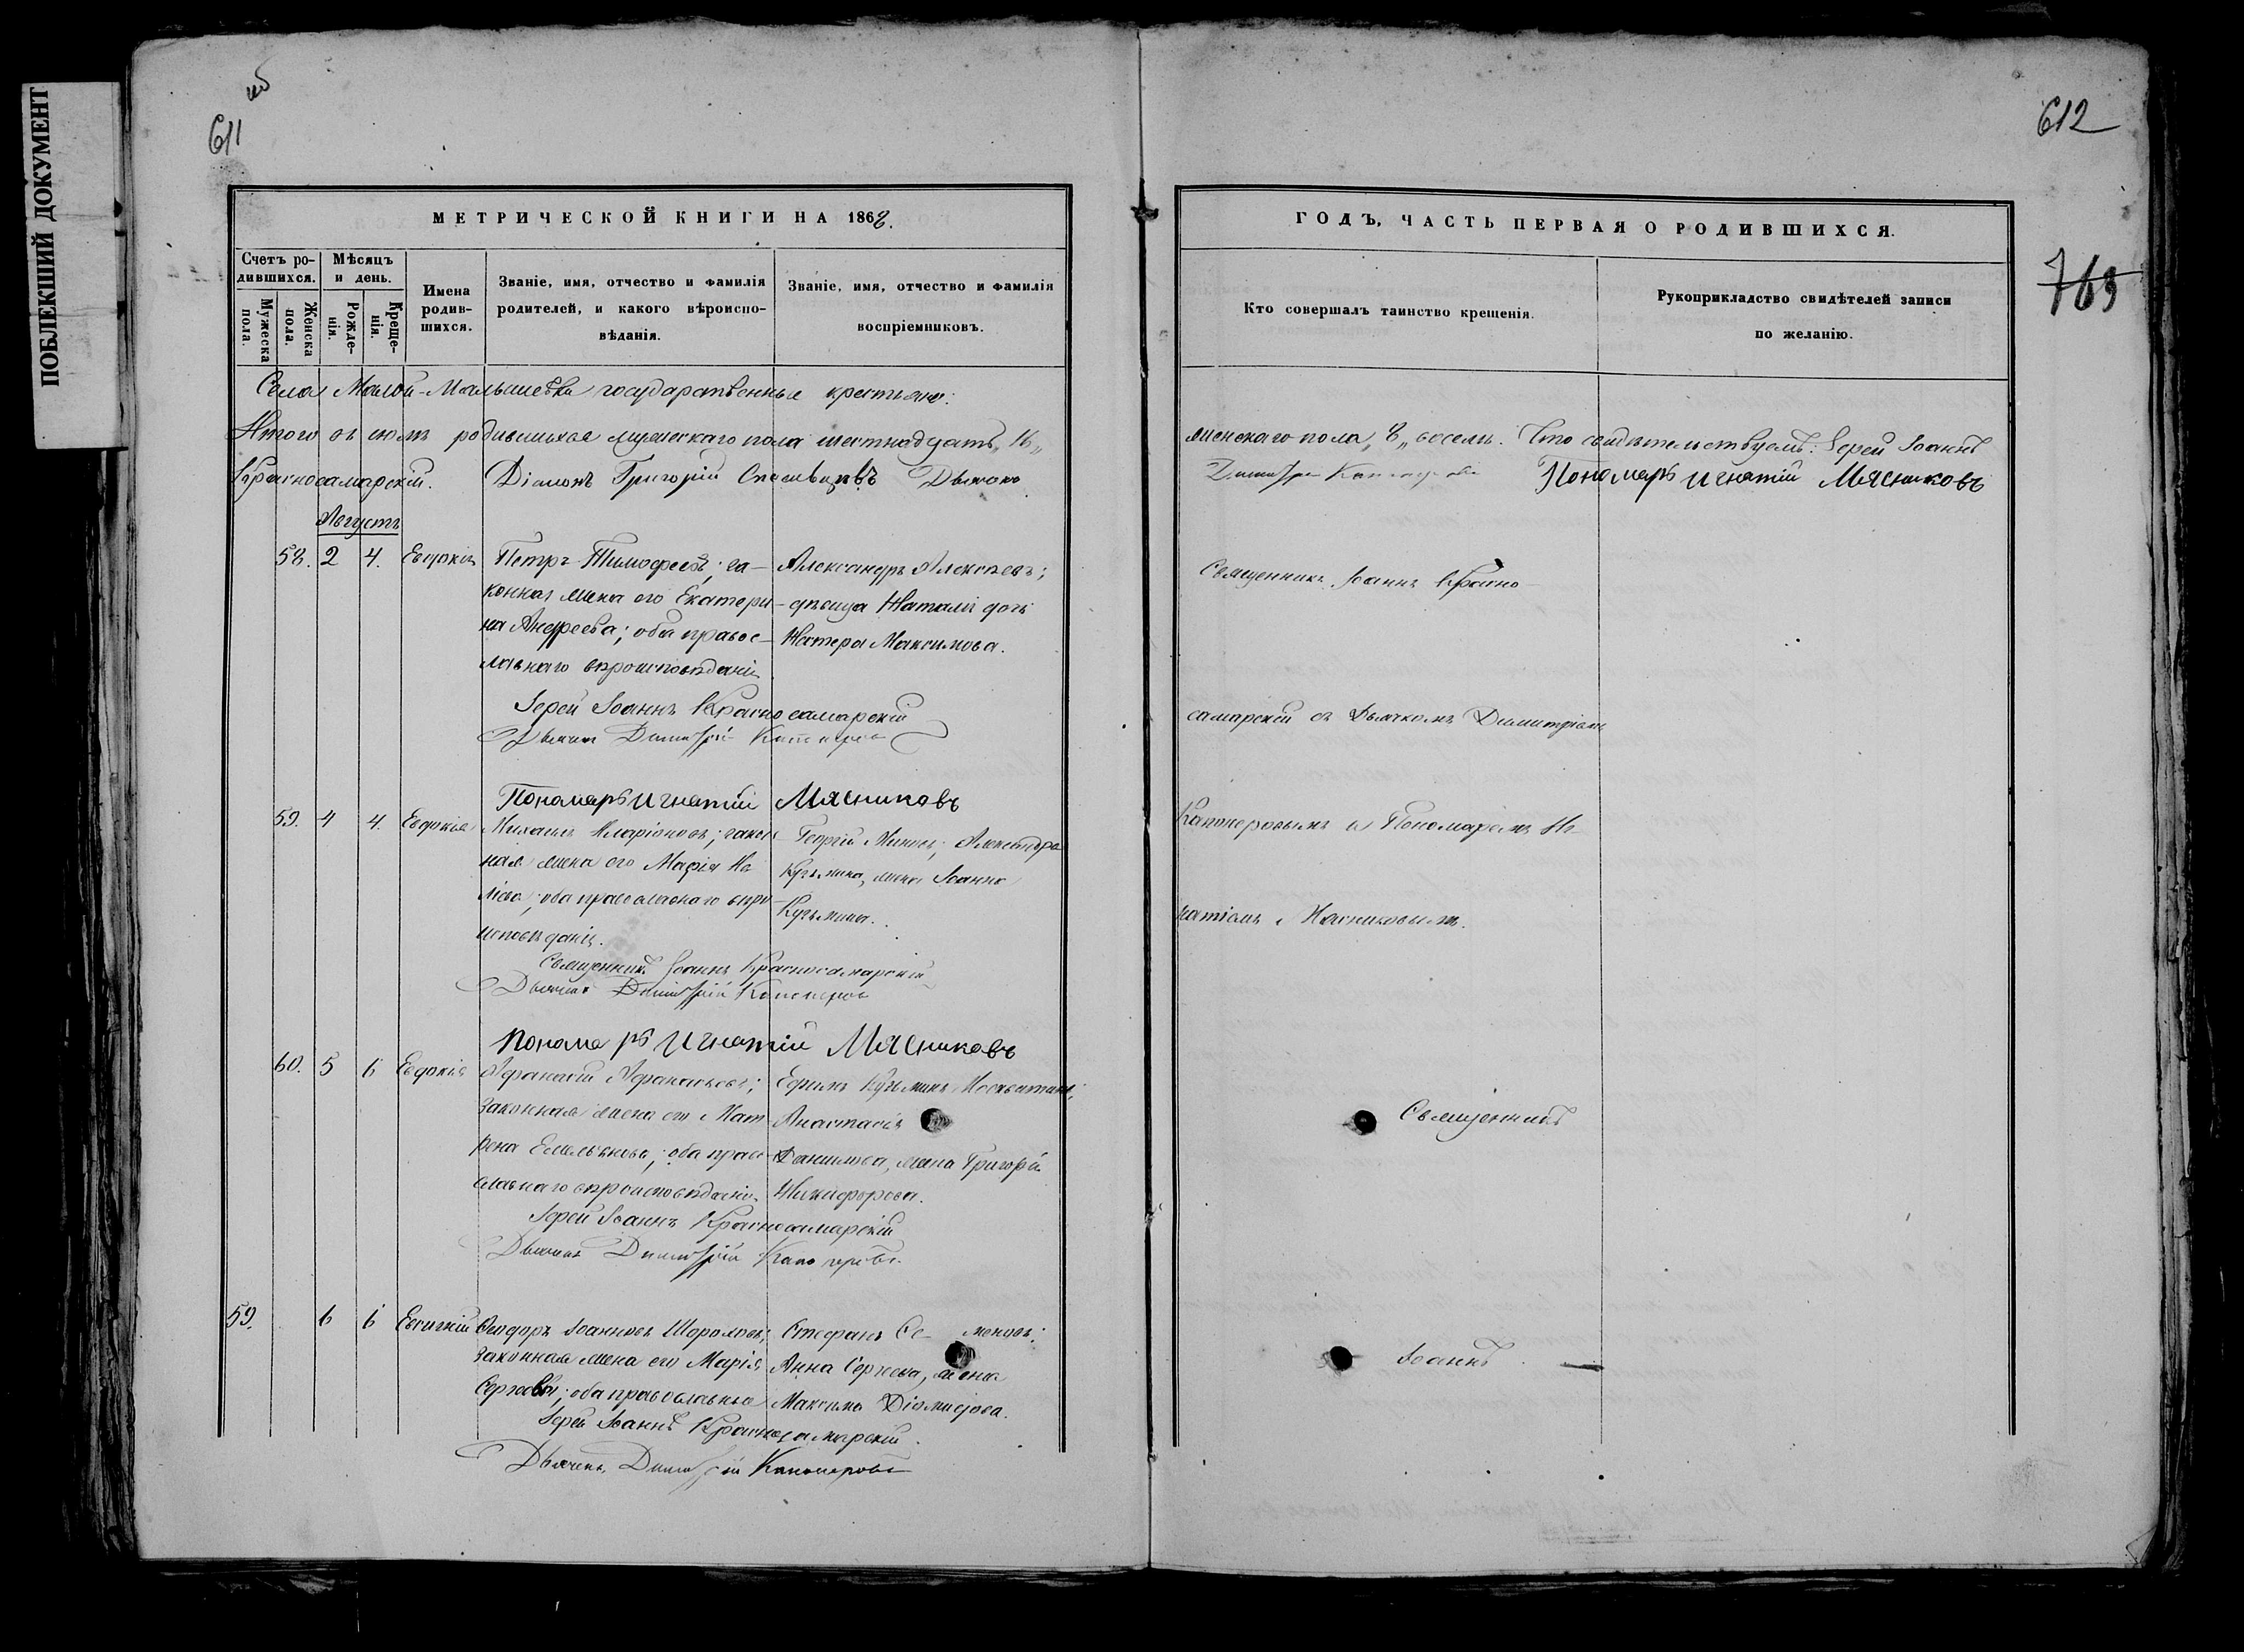 ПОБЛЕКШИЙ ДОКУМЕНТ
611
612
763
МЕТРИЧЕСКОЙ КНИГИ НА 1868.
Счетъ родившихся.
Мужеска пола.
Женска пола.
Мѣсяцъ и день.
Рожденія.
Крещенія.
Имена родившихся.
Званіе, имя, отчество и фамилія
родителей, и какого вѣроиспо-
вѣданія.
Званіе, имя, отчество и фамилія
воспріемниковъ.
Села Малой-Малышевки государственные крестьяне:
Итого въ іюлѣ родившихся мужескаго пола шестнадцать „16„
Красносамарскій. Діаконъ Григорій Дьячокъ
Августъ
58. 2 4. Евдокія
Петръ Тимофеевъ; за-
конная жена его Екатери-
на Андреева; оба правос-
лавнаго вѣроисповѣданія
Александръ Алексѣевъ;
дѣвица Наталія дочь
Петра Максимова.
Іерей Іоаннъ Красносамарскій
Дьячокъ Димитрій Капонеровъ
Пономарь Игнатій Мясниковъ
59. 4 4. Евдокія
Михаилъ Иларіоновъ; закон-
ная жена его Марія
оба православнаго вѣро-
исповѣданія.
Георгій Александра
Кузьмина, жена Іоанна
Кузьмина.
Священникъ Іоаннъ Красносамарскій
Дьячокъ Димитрій Капонеровъ
Пономарь Игнатій Мясниковъ
60. 5 6 Евдокія
Афанасій Афанасьевъ;
законная жена его Мат-
рена Емельянова; оба право-
славнаго вѣроисповѣданія
Ефимъ Кузьминъ
Анастасія
Данилова, жена Григорія
Никифорова.
Іерей Іоаннъ Красносамарскій
Дьячокъ Димитрій Капонеровъ
59. 6 6 Евсигній
Ѳеодоръ Іоанновъ
законная жена его Марія
Сергѣева; оба православные
Стефанъ Семеновъ;
Анна Сергѣева, жена
Максима Діомидова.
Іерей Іоаннъ Красносамарскій.
Дьячокъ Димитрій Капонеровъ
ГОДЪ, ЧАСТЬ ПЕРВАЯ О РОДИВШИХСЯ.
Кто совершалъ таинство крещенія.
Рукоприкладство свидѣтелей записи
по желанію.
женскаго пола „8„ восемь. Что свидѣтельствуемъ: Іерей Іоаннъ
Димитрій Капонеровъ Пономарь Игнатій Мясниковъ
Священникъ Іоаннъ Красно-
самарскій съ Дьячкомъ Димитріемъ
Капонеровымъ и Пономаремъ Иг-
натіемъ Мясниковымъ.
Священникъ
Іоаннъ